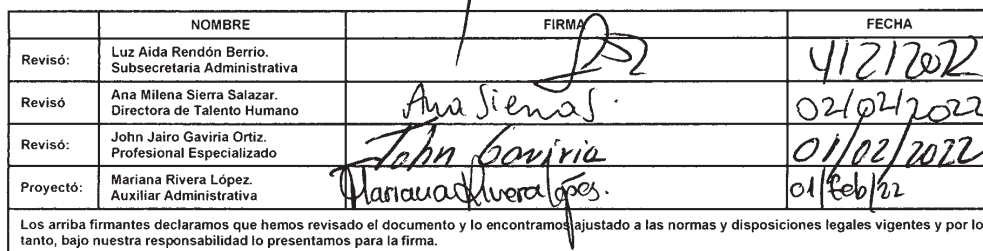 NOMBRE FIRMA FECHA
Revisó: Luz Aida Rendón Berrio.
Subsecretaria Administrativa 4/2/2022
Revisó Ana Milena Sierra Salazar.
Directora de Talento Humano Ana Sierra S. 02/02/2022
Revisó: John Jairo Gaviria Ortiz.
Profesional Especializado John Gaviria 01/02/2022
Proyectó: Mariana Rivera López.
Auxiliar Administrativa Mariana Rivera López. 01/Feb/22
Los arriba firmantes declaramos que hemos revisado el documento y lo encontramos ajustado a las normas y disposiciones legales vigentes y por lo
tanto, bajo nuestra responsabilidad lo presentamos para la firma.